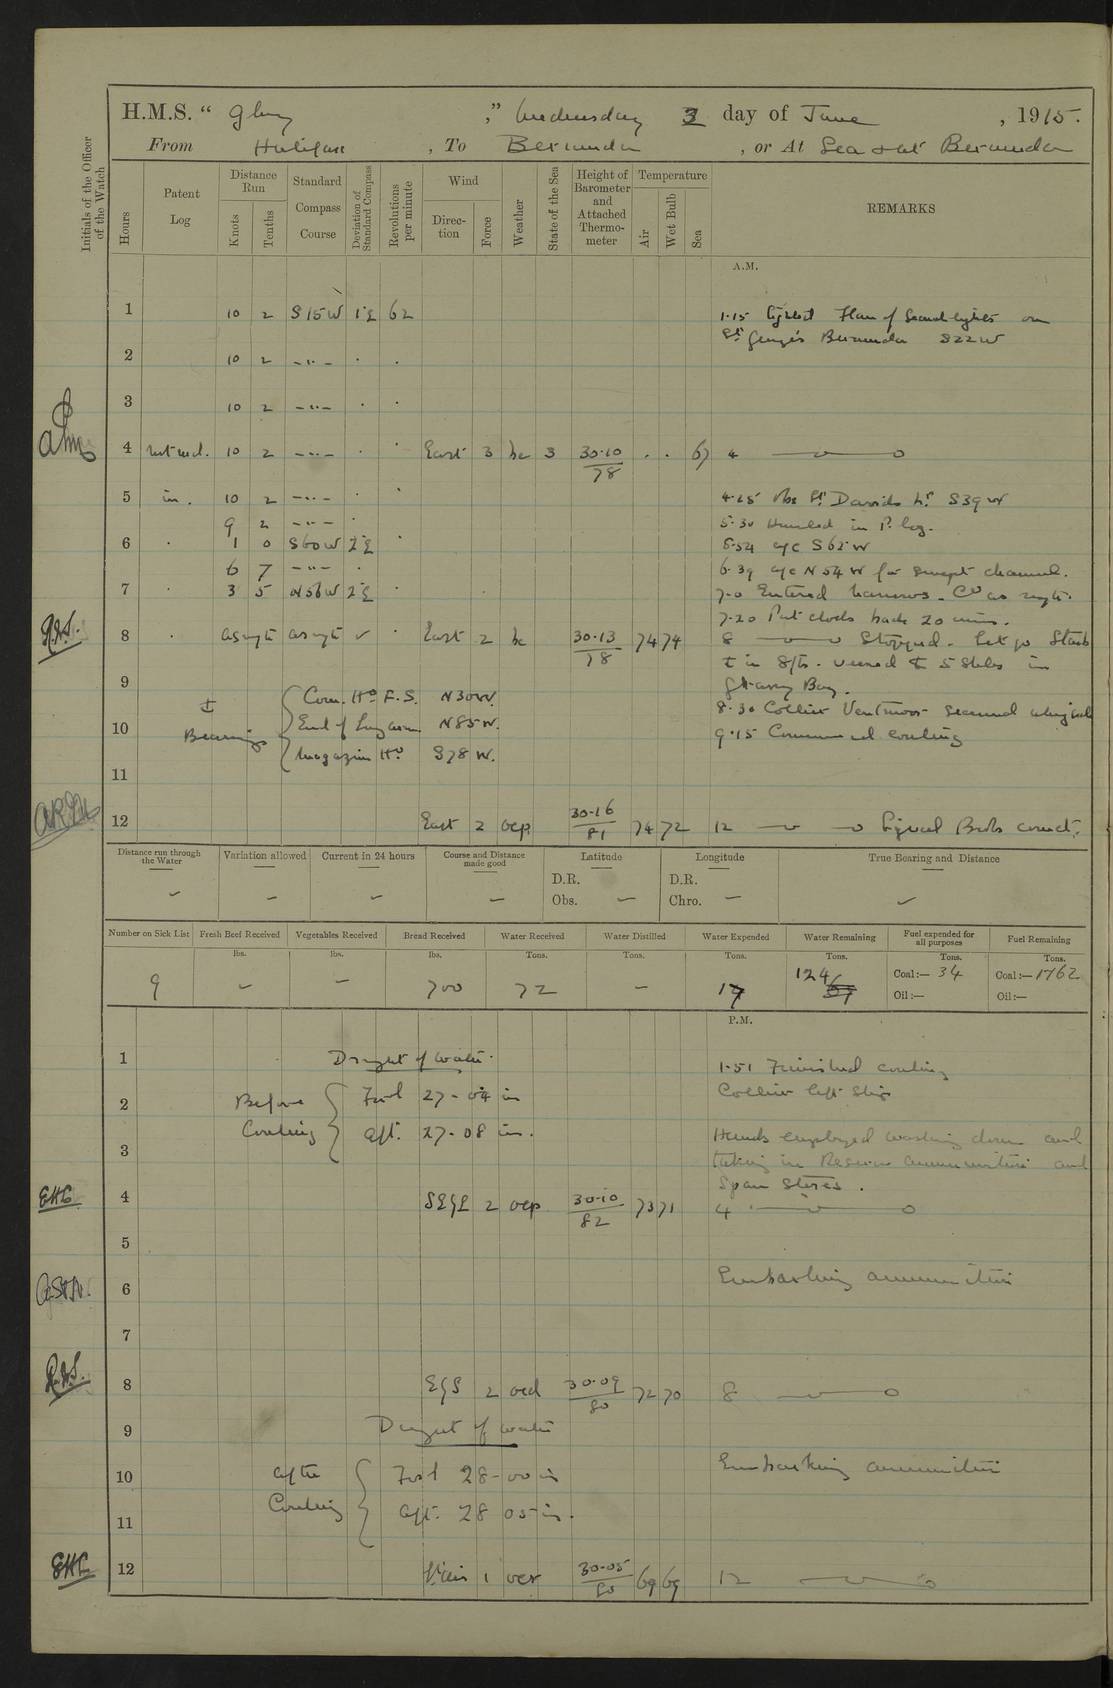 H.M.S. “ Glory ,” Wednesday 3 day of June , 1915.
From Halifax , To Bermuda , or At Sea & at Bermuda
Initials of the Officer of the Watch
Hours
Patent Log
Distance Run
Knots
Tenths
Standard Compass Course
Deviation of Standard Compass
Revolutions per minute
Wind
Direction
Force
Weather
State of the Sea
Height of Barometer and Attached Thermometer
Temperature
Air
Wet Bulb
Sea
REMARKS
A.M.
1 10 2 S 15 W 1 E 62 1.15 Sighted Flare of Searchlights on
St George's Bermuda S 22 W
2 10 2 - " - . .
3 10 2 - " - . .
4 10 2 - " - . . East 3 bc 3 30.10 / 78 . . 67 4
5 in. 10 2 - " - . . 4.25 Obs St Davids Lt S 39 W
9 2 - " - . 5.30 Hauled in P. log.
6 . 1 0 S 60 W 2 E . 5.54 a/c S 62 W
6 7 - " - . 6.39 a/c N 54 W for swept channel.
7 . 3 5 N 56 W 2 E . 7.0 Entered Narrows. Co as reqte.
7.20 Put clocks back 20 mins.
8 . as reqte as reqte . East 2 bc 30.13 / 78 74 74 8 Stopped. Let go Starb
in 8 fms. veered to 5 Shks in
Grassy Bay.
9
Bearings
Com. Ho F.S. N 30 W.
8.30 Collier Ventmoor secured alongside
10 End of Long arm N 85 W.
9.15 Commenced coaling
Magazine Ho S 78 W.
11
12 East 2 ocp 30.16 / 81 74 72 12 Signal Books correct.
Distance run through the Water
Variation allowed
Current in 24 hours
Course and Distance made good
Latitude
D.R.
Obs.
Longitude
D.R.
Chro.
True Bearing and Distance
Number on Sick List
Fresh Beef Received
Vegetables Received
Bread Received
Water Received
Water Distilled
Water Expended
Water Remaining
Fuel expended for all purposes
Fuel Remaining
lbs. lbs. lbs. Tons. Tons. Tons. Tons. Tons. Tons.
9 - - 700 72 - 17 124 Coal:— 34 Coal:— 1762
Oil:— Oil:—
P.M.
1 Draught of Water. 1.51 Finished coaling
Collier left Ship
2 Before Coaling
Ford 27-04 in
Aft. 27-08 in.
3 Hands employed washing down and
taking in Reserve ammunition and
Spare Stores.
4 SE'yE 2 ocp 30.10 / 82 73 71 4
5
6 Embarking ammunition
7
8 E'yS 2 ocd 30.09 / 80 72 70 8
9 Draught of Water
10 After Coaling
Ford 28-00 in
Embarking ammunition
11 Aft. 28 05 in.
12 1 30.05 / 80 69 69 12